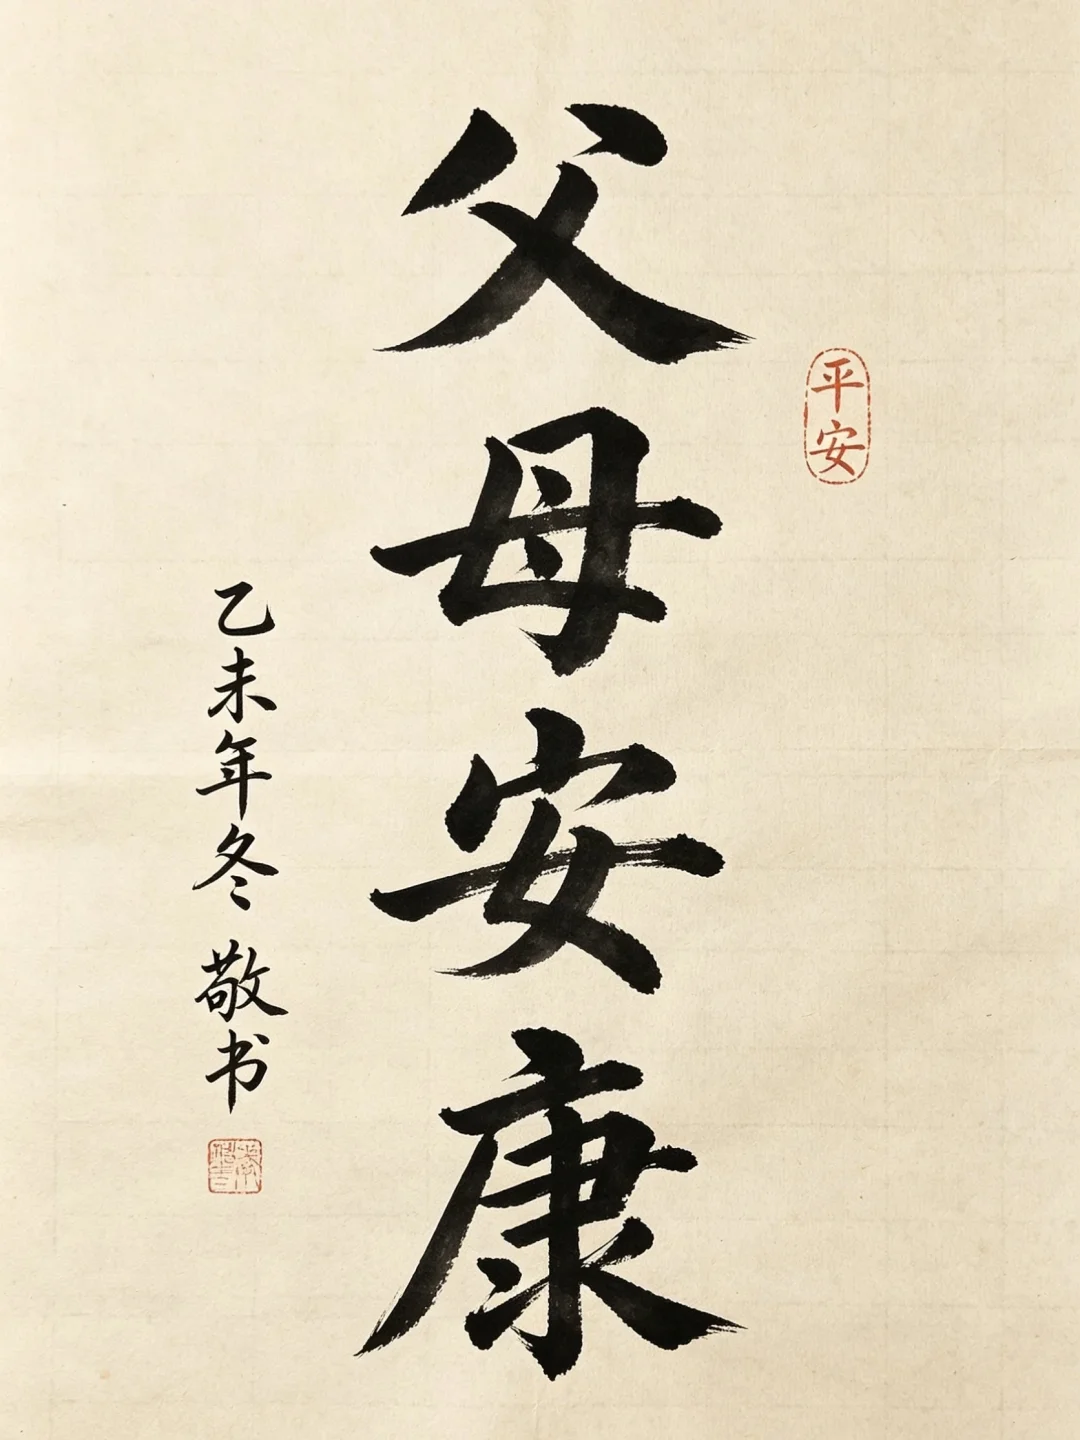 父母安康
平安
乙未年冬 敬书